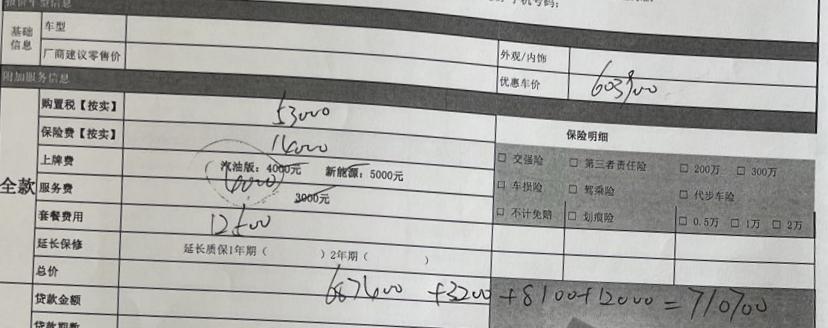 报价车型信息
手机号码:
基础信息
车型
厂商建议零售价
外观/内饰
优惠车价 603900
附加服务信息
全款
购置税【按实】 53000
保险费【按实】 14000
上牌费 汽油版: 4000元 新能源: 5000元
服务费 3000元
套餐费用 12500
延长保修 延长质保1年期( )2年期( )
总价 687400 +3200 +8100+12000=710700
保险明细
□ 交强险 □ 第三者责任险 □ 200万 □ 300万
□ 车损险 □ 驾乘险 □ 代步车险
□ 不计免赔 □ 划痕险 □ 0.5万 □ 1万 □ 2万
贷款金额
贷款期数